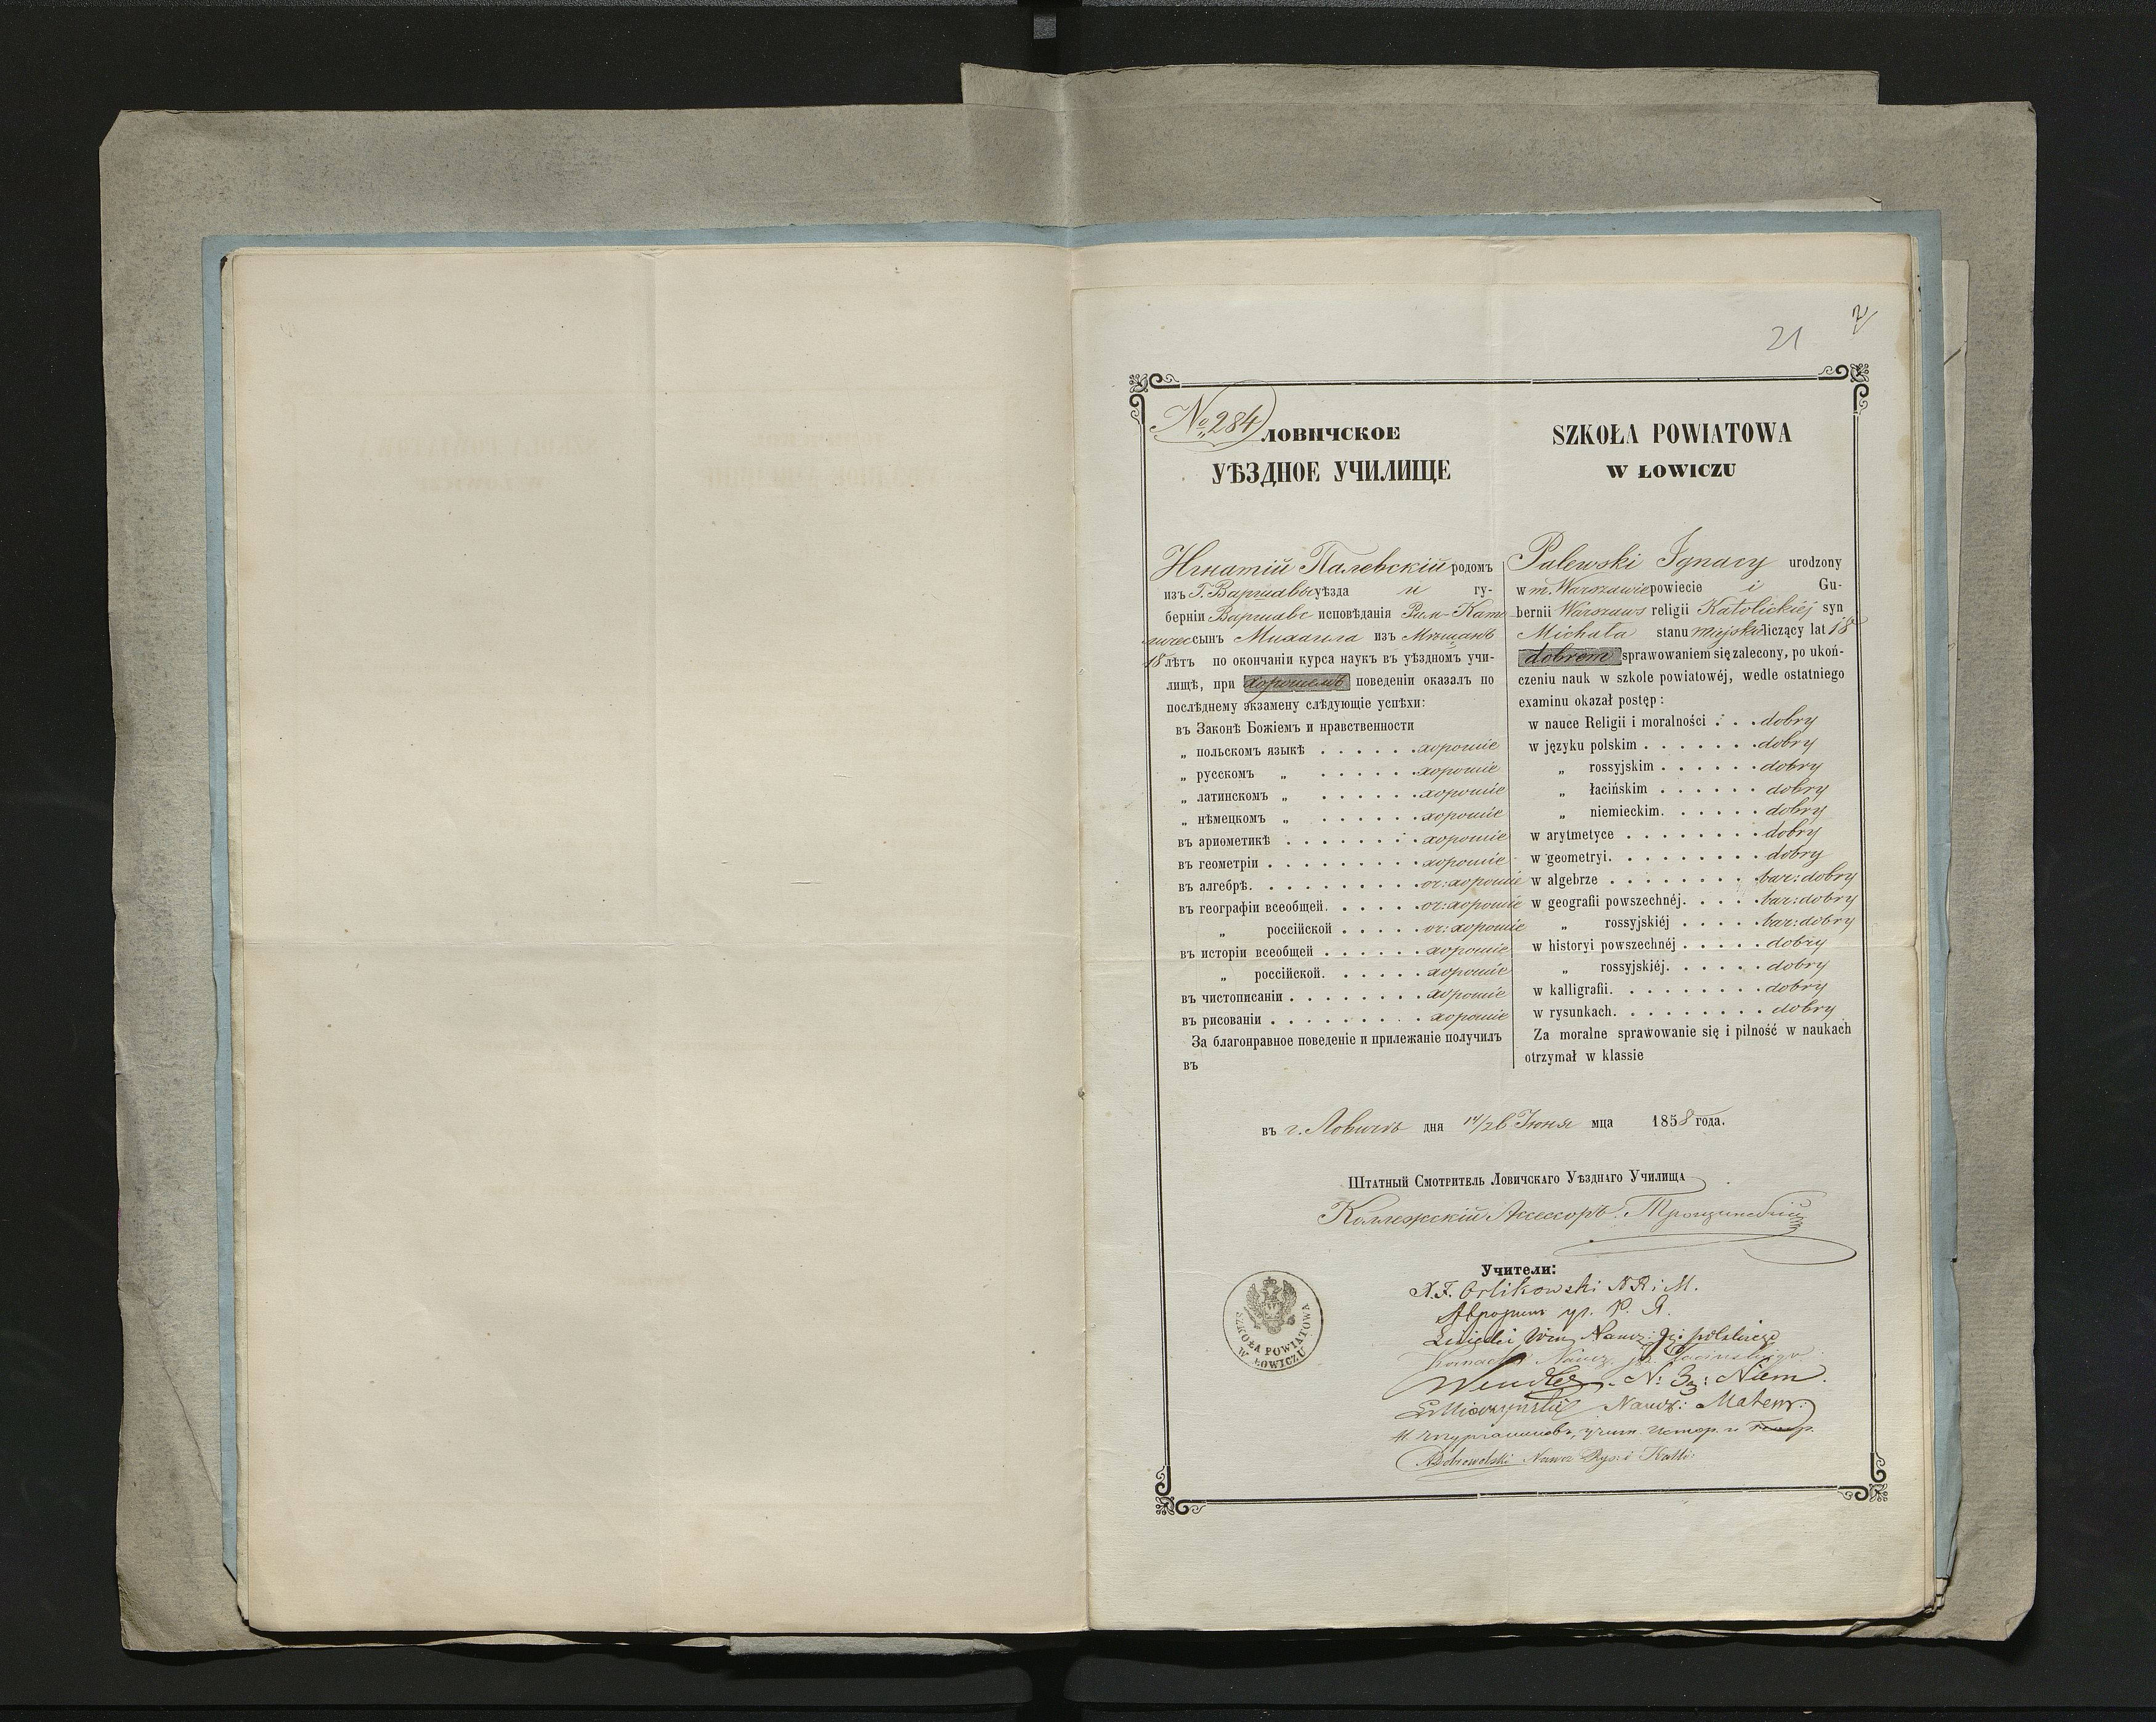 21
№ 284
ЛОВИЧСКОЕ
УѢЗДНОЕ УЧИЛИЩЕ
Игнатій Палевскій родомъ
изъ Г. Варшавы уѣзда и гу-
берніи Варшавс исповѣдания Рим-Като
личес сынъ Михаила изъ Мѣщанъ
18 лѣтъ по окончаніи курса наукъ въ уѣздномъ учи-
лищѣ, при хорошемъ поведеніи оказалъ по
послѣднему экзамену слѣдующіе успѣхи:
въ Законѣ Божіемъ и нравственности
„ польскомъ языкѣ . . . . . . хорошіе
„ русскомъ „ . . . . . . хорошіе
„ латинскомъ „ . . . . . . хорошіе
„ нѣмецкомъ „ . . . . . . хорошіе
въ ариѳметикѣ . . . . . . . . хорошіе
въ геометріи . . . . . . . . . хорошіе
въ алгебрѣ. . . . . . . . . . оч: хорошіе
въ географіи всеобщей. . . . . . оч: хорошіе
„ россійской . . . . . оч: хорошіе
въ исторіи всеобщей . . . . . . хорошіе
„ россійской. . . . . . хорошіе
въ чистописаніи . . . . . . . . хорошіе
въ рисованіи . . . . . . . . . хорошіе
За благонравное поведеніе и прилежаніе получилъ
въ
SZKOŁA POWIATOWA
W ŁOWICZU
Palewski Ignacy urodzony
w m. Warszawie powiecie i Gu-
bernii Warszaws religii Katolickiéj syn
Michała stanu miejskie liczący lat 18
dobrem sprawowaniem się zalecony, po ukoń-
czeniu nauk w szkole powiatowéj, wedle ostatniego
examinu okazał postęp:
w nauce Religii i moralności . . . dobry
w języku polskim . . . . . . . dobry
„ rossyjskim . . . . . . dobry
„ łacińskim . . . . . . dobry
„ niemieckim. . . . . . dobry
w arytmetyce . . . . . . . . dobry
w geometryi. . . . . . . . . dobry
w algebrze . . . . . . . . bar: dobry
w geografii powszechnéj. . . . . bar: dobry
„ rossyjskiéj . . . . . bar: dobry
w historyi powszechnéj . . . . . dobry
„ rossyjskiéj. . . . . . dobry
w kalligrafii. . . . . . . . . dobry
w rysunkach. . . . . . . . . dobry
Za moralne sprawowanie się i pilność w naukach
otrzymał w klassie
въ г. Ловичѣ дня 14/26 Іюня мца 1858 года.
Штатный Смотритель Ловичскаго Уѣзднаго Училища
Коллежскій Ассессоръ
Учители:
X. F. Orlikowski N R i M.
Naucz: Ję: polskiego
Naucz. języ. łacińskiego
Wendler. N: Jz: Niem.
Naucz: Matem:
учит. истор. и геогр.
ADobrowolski Naucz Rys: i Kalli:
SZKOŁA POWIATOWA
W ŁOWICZU